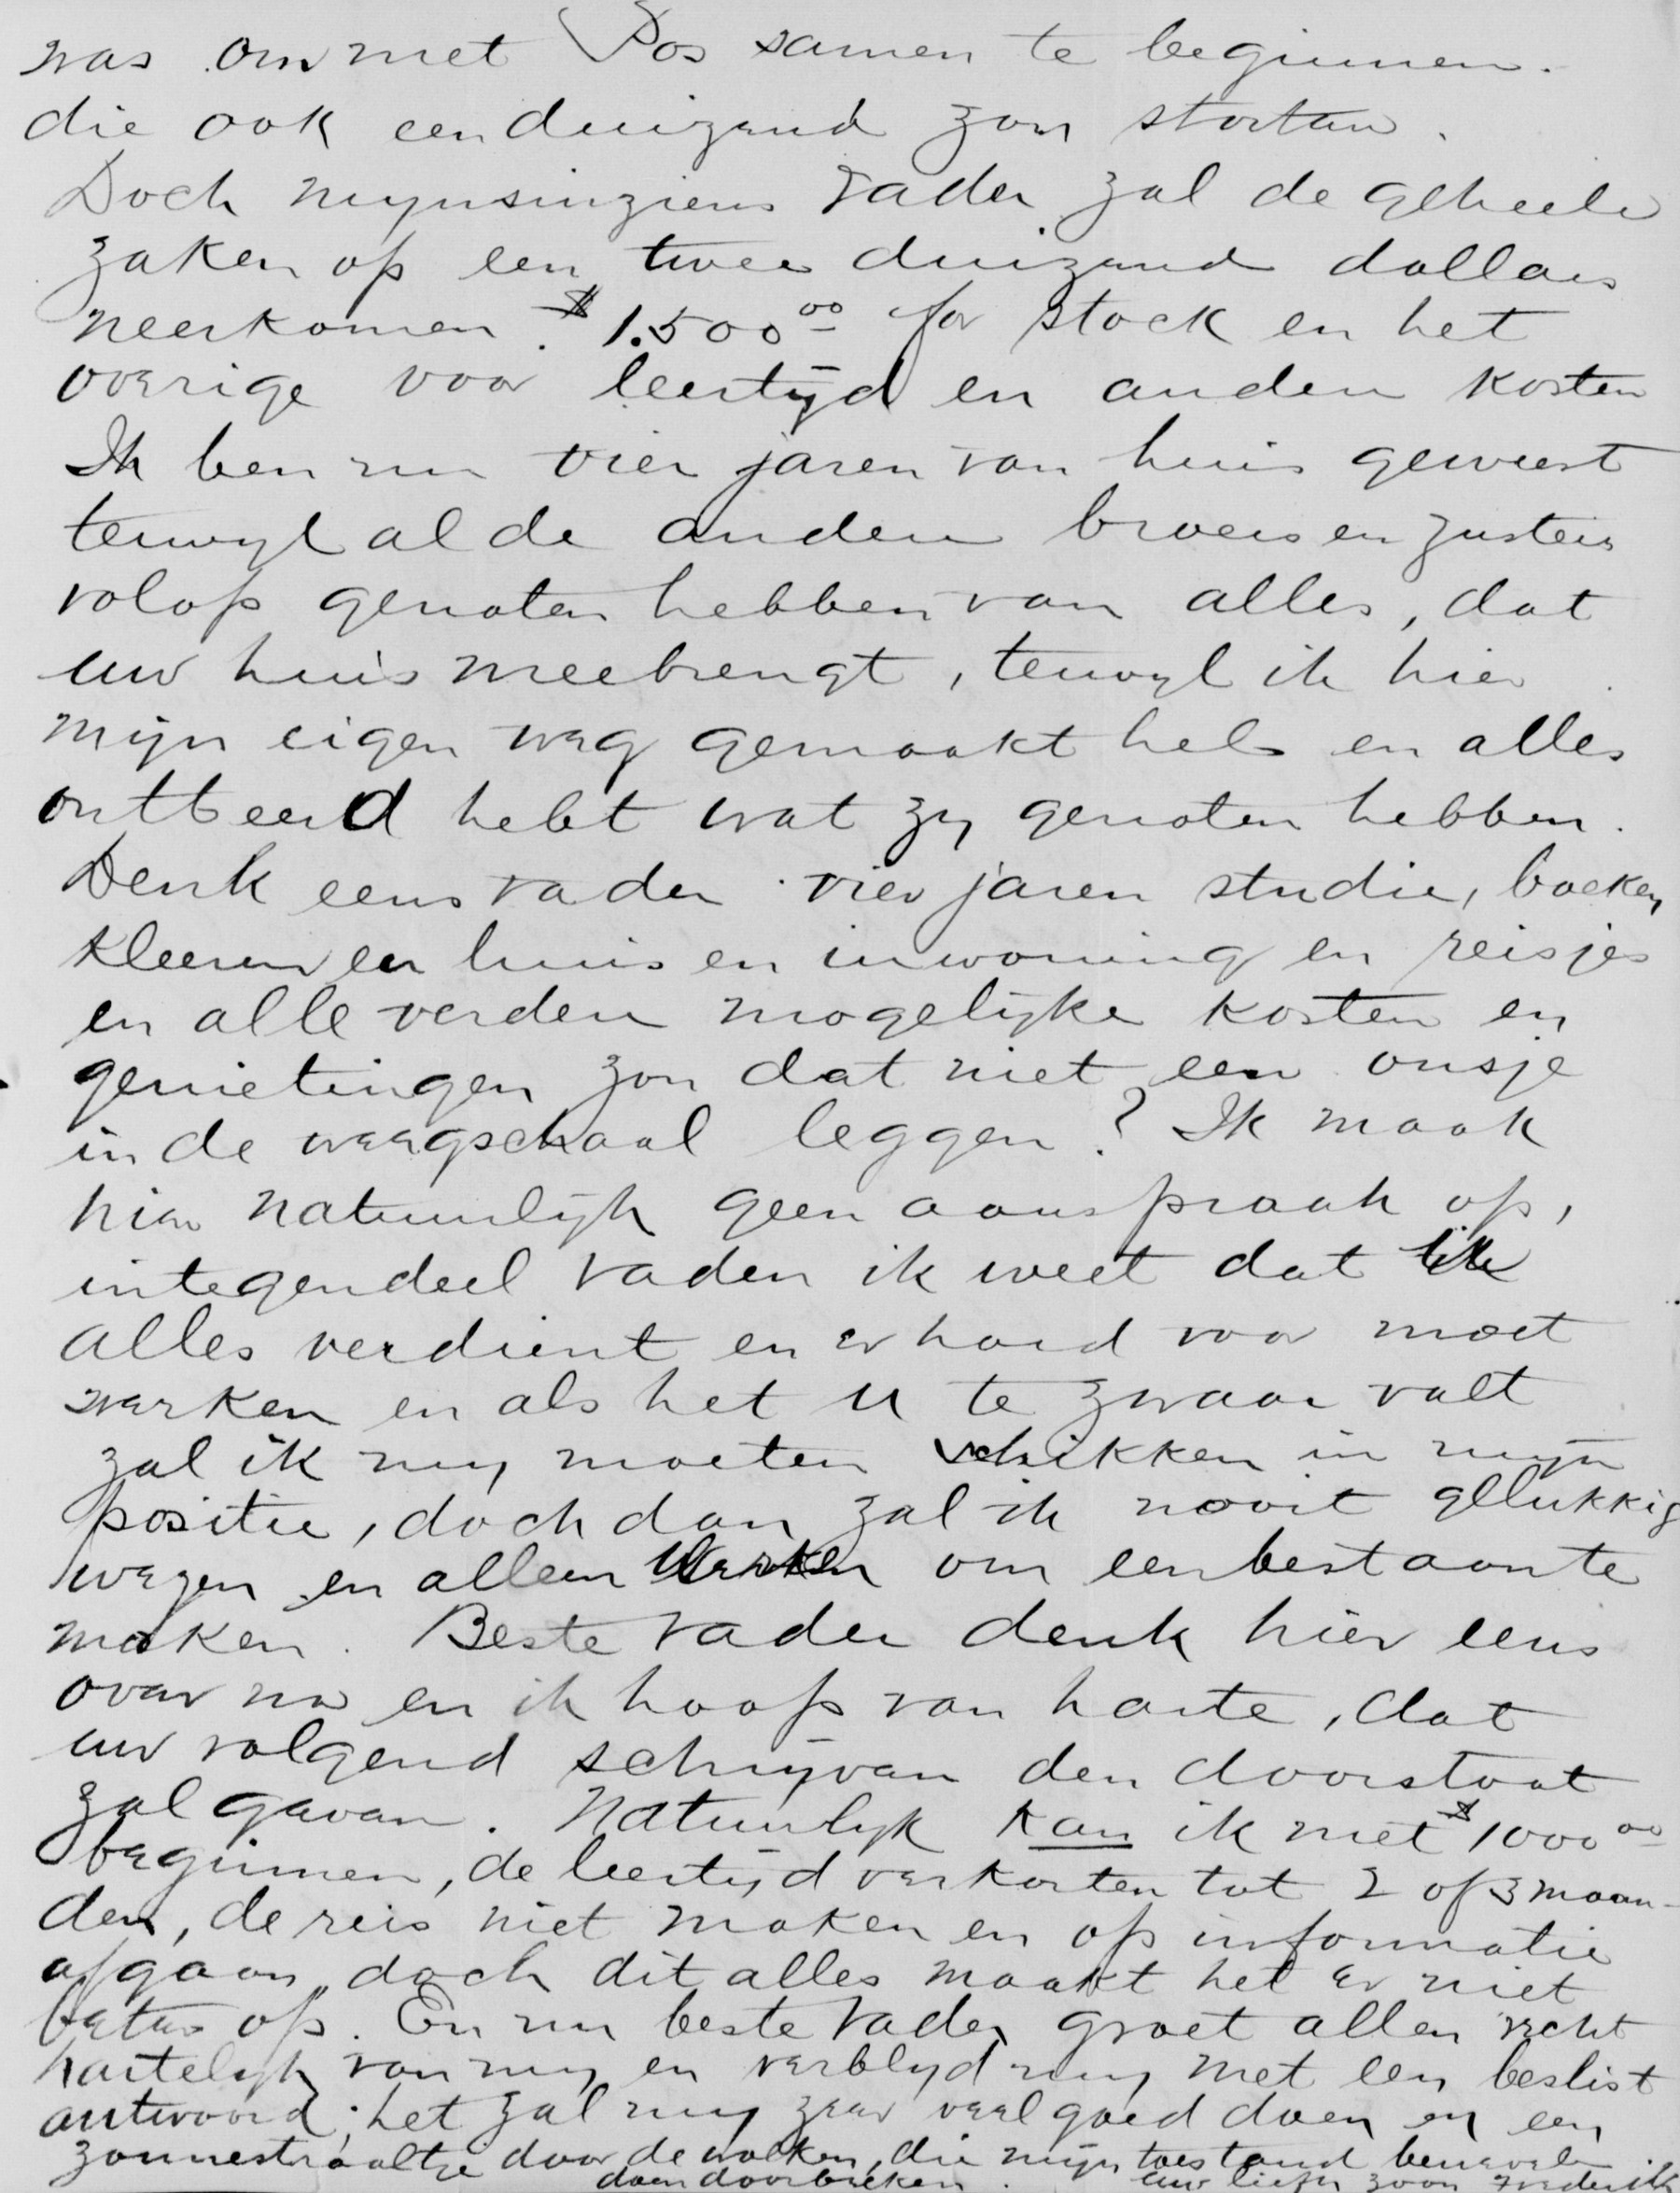 was om met Vos samen te beginnen.
die ook een duizend zou storten.
Doch mijnsinziens Vader zal de geheele
zaken op een twee duizend dollars
neerkomen. $1.500 00 for stock en het
overige voor leertijd en andere kosten
Ik ben nu vier jaren van huis geweest
terwyl al de andere broers en zusters
volop genoten hebben van alles, dat
uw huis meebrengt, terwyl ik hier
mijn eigen weg gemaakt heb en alles
ontbeerd hebt wat zy genoten hebben.
Denk eens vader vier jaren studie, boeken
kleeren en huis en inwoning en reisjes
en alle verdere mogelijke kosten en
genietingen zou dat niet een onsje
in de weegschaal leggen? Ik maak
hier natuurlijk geen aanspraak op,
integendeel vader ik weet dat
alles verdient en er hard voor moet
werken en als het u te zwaar valt
zal ik my moeten schikken in mijn
positie, doch dan zal ik nooit gelukkig
wezen en alleen werken om een bestaan te
maken. Beste vader denk hier eens
over na en ik hoop van harte, dat
uw volgend schrijven den doorstoot
zal geven. Natuurlyk kan ik met $1000 00
beginnen, de leertijd verkorten tot 2 of 3 maan-
den, de reis niet maken en op informatie
afgaan, doch dit alles maakt het er niet
beter op. En nu beste Vader groet allen recht
hartelijk van my en verblyd my met een beslist
antwoord; het zal my zeer veel goed doen en een
zonnestraaltje door de wolken, die mijn toestand
doen doorbreken. uw liefh zoon Frederik